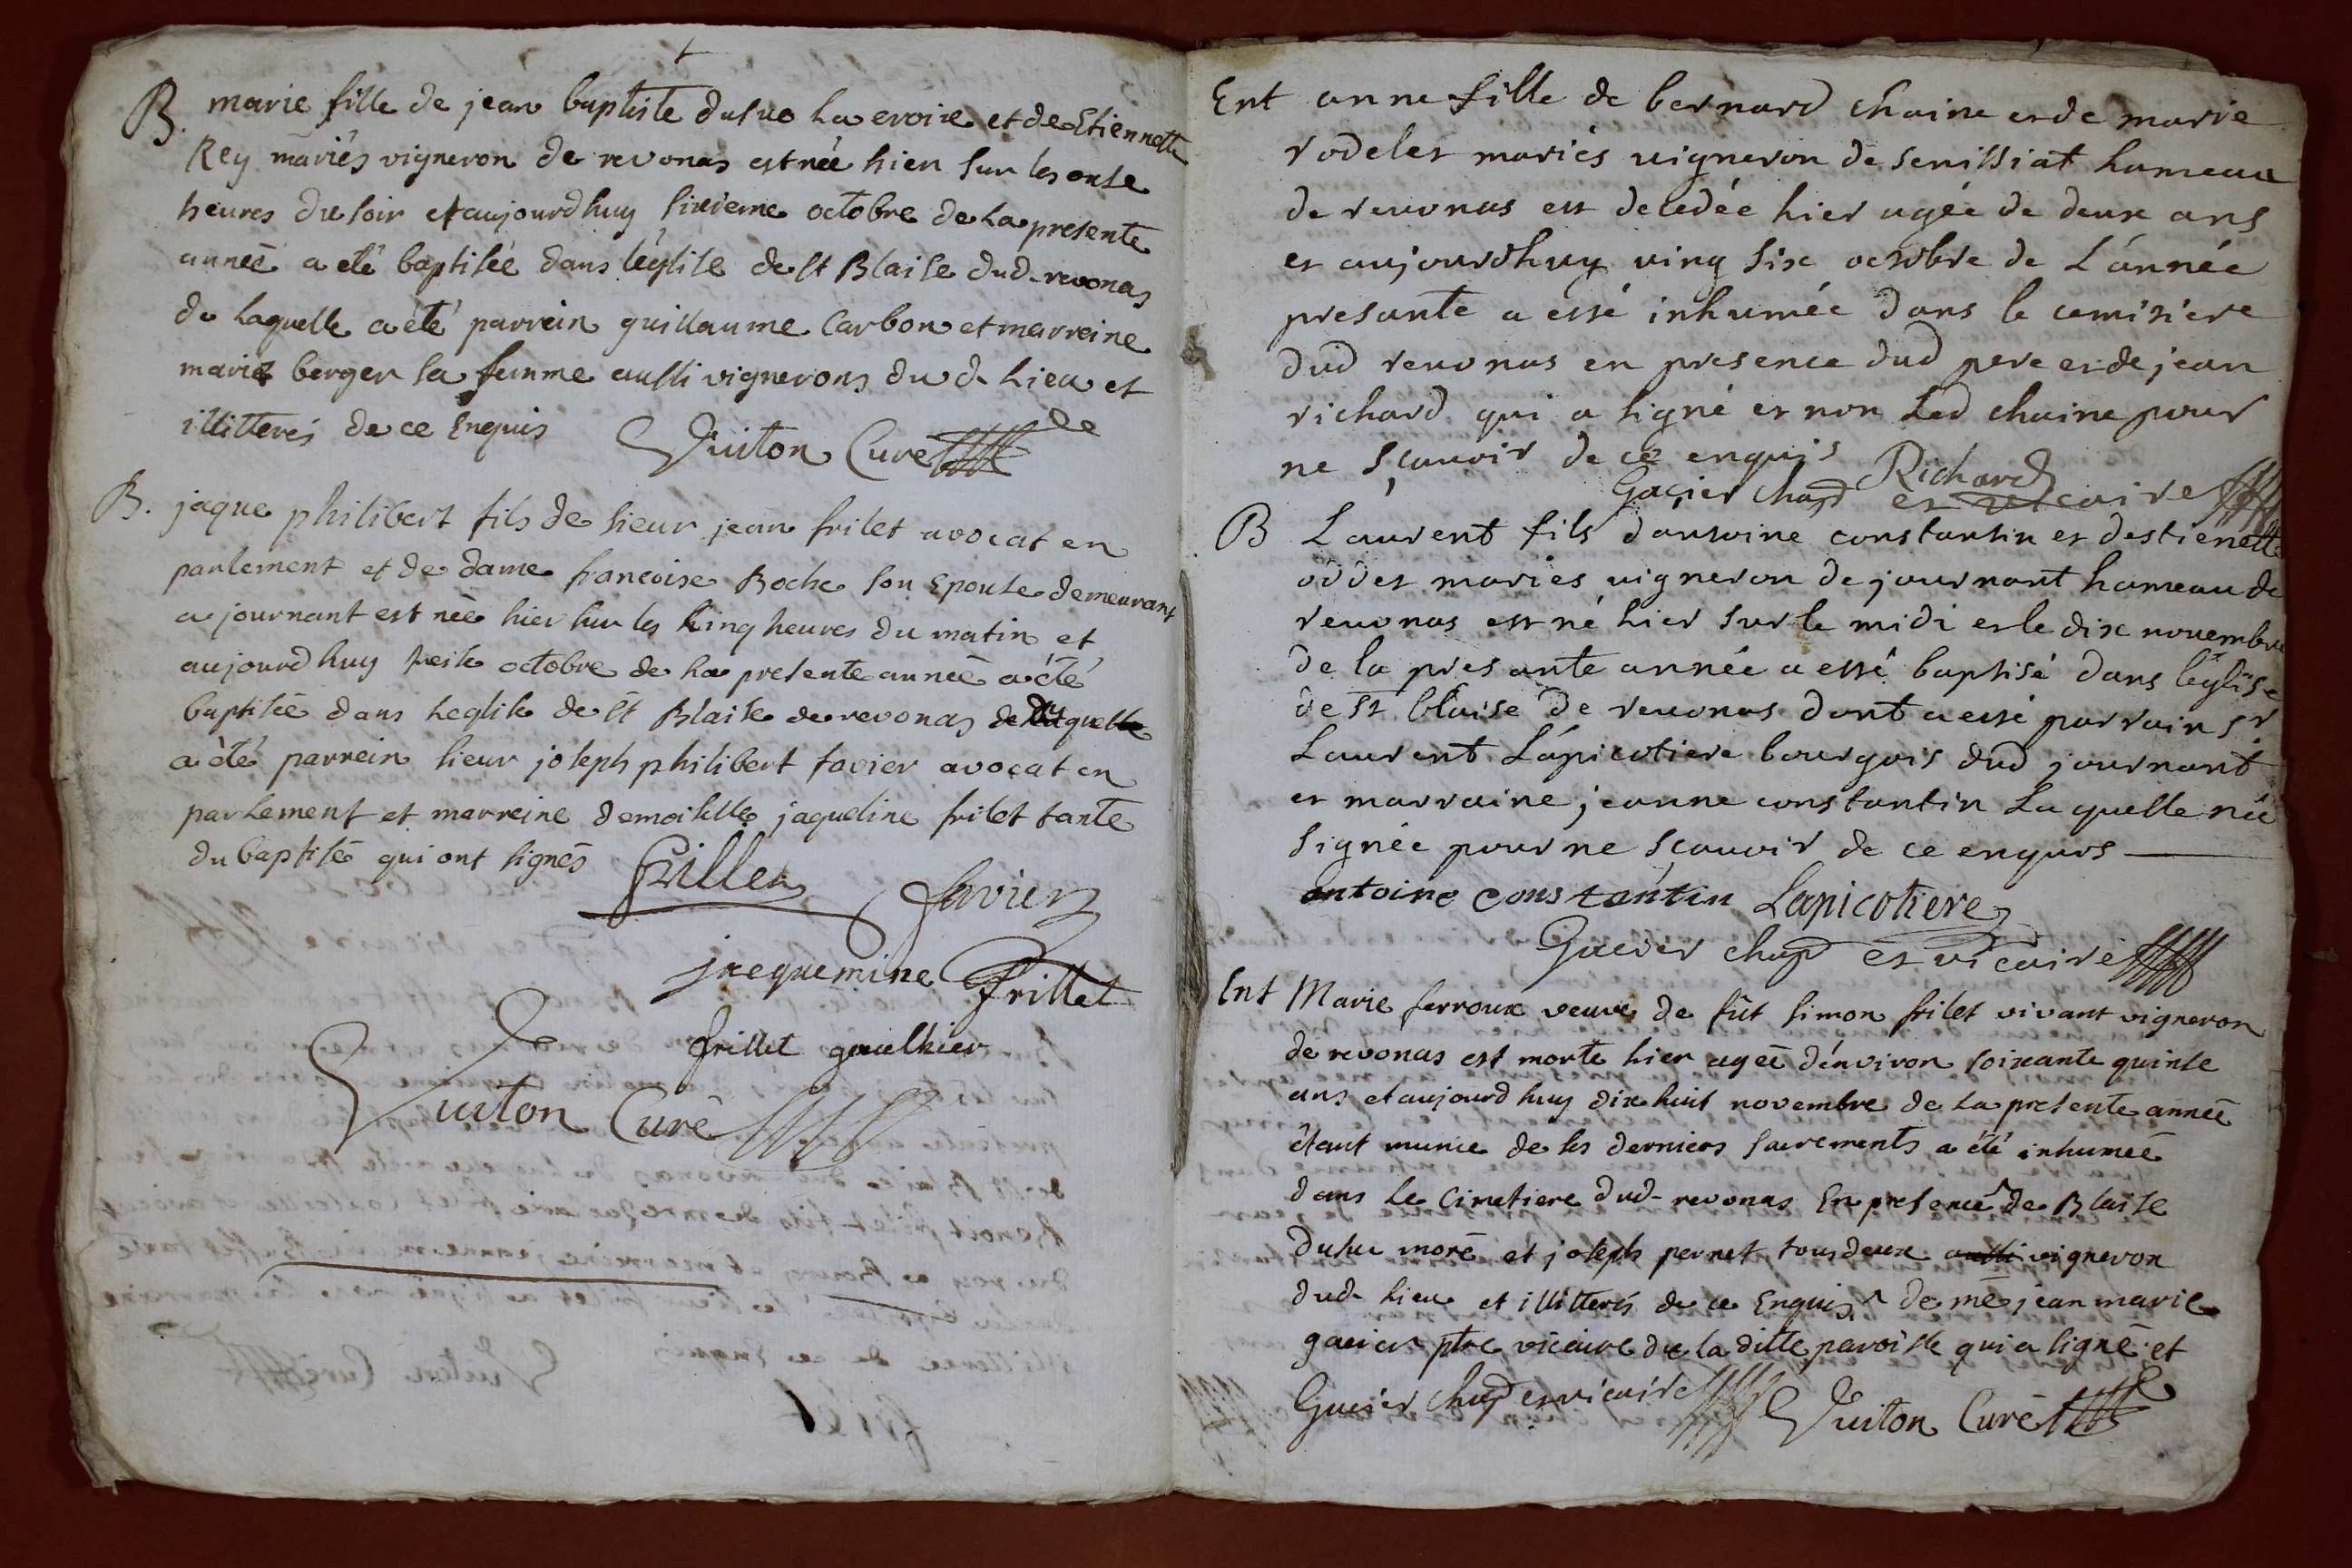 B. marie fille de jean baptiste dusuc la croix et de Etiennette
Rey mariés vigneron de revonas est née hier sur les onse
heures du soir et aujourdhuy sixieme octobre de la presente
année a été baptisée dans léglise de st Blaise dud. revonas
de laquelle a été parrein guillaume Carbon et marreine
marie berger sa femme aussi vignerons du d. lieu et
illitterés de ce Enquis Vuiton Curé
B. jaque philibert fils de sieur jean frilet avocat en
parlement et de dame francoise Boche son Epouse demeurant
a journant est née hier sur les cinq heures du matin et
aujourd huy treise octobre de la presente année a été
baptisée dans leglise de st Blaise de revonas duquel
a été parrein sieur joseph philibert favier avocat en
parlement et marreine demoiselle jaqueline frilet tante
du baptisé qui ont signés Frillet favier
jacquemine Frillet
frillet gauthier
Vuiton Curé
Ent anne fille de bernard chaine et de marie
rodelet mariés vigneron de senissiat hameau
de revonas est decedée hier agée de deux ans
et aujourdhuy ving six octobre de L'année
presante a esté inhumée dans le cemitiere
dud revonas en presence dud pere et de jean
richard qui a signé et non led chaine pour
ne sçauvoir de ce enquis Richard
Gacier chap et vicaire
B Laurent fils d'antoine constantin et destienette
oddet mariés vigneron de journant hameau de
revonas est né hier sur le midi et le dix novembre
de la presante année a esté baptisé dans léglise
de st blaise de revonas dont a esté parrain sr
Laurent Lápicotiere bourgois dud journant
et marraine jeanne constantin Laquelle n'a
signée pour ne scauvoir de ce enquis
antoine constantin Lapicotiere
Gacier chap et vicaire
Ent Marie ferroux veuve de fût simon frilet vivant vigneron
de revonas est morte hier agée d'environ soixante quinse
ans et aujourd huy dix huit novembre de la presente année
étant munie de ses derniers sacrements a été inhumée
dans le Cimetiere dud. revonas En presence ^ de Blaise
dusuc moré et joseph pernet tous deux aussi vigneron
dud. lieu et illitterés de ce Enquis ^ de me jean marie
gacier ptre vicaire de la ditte paroisse qui a signé et
Gacier chap et vicaire Vuiton Curé